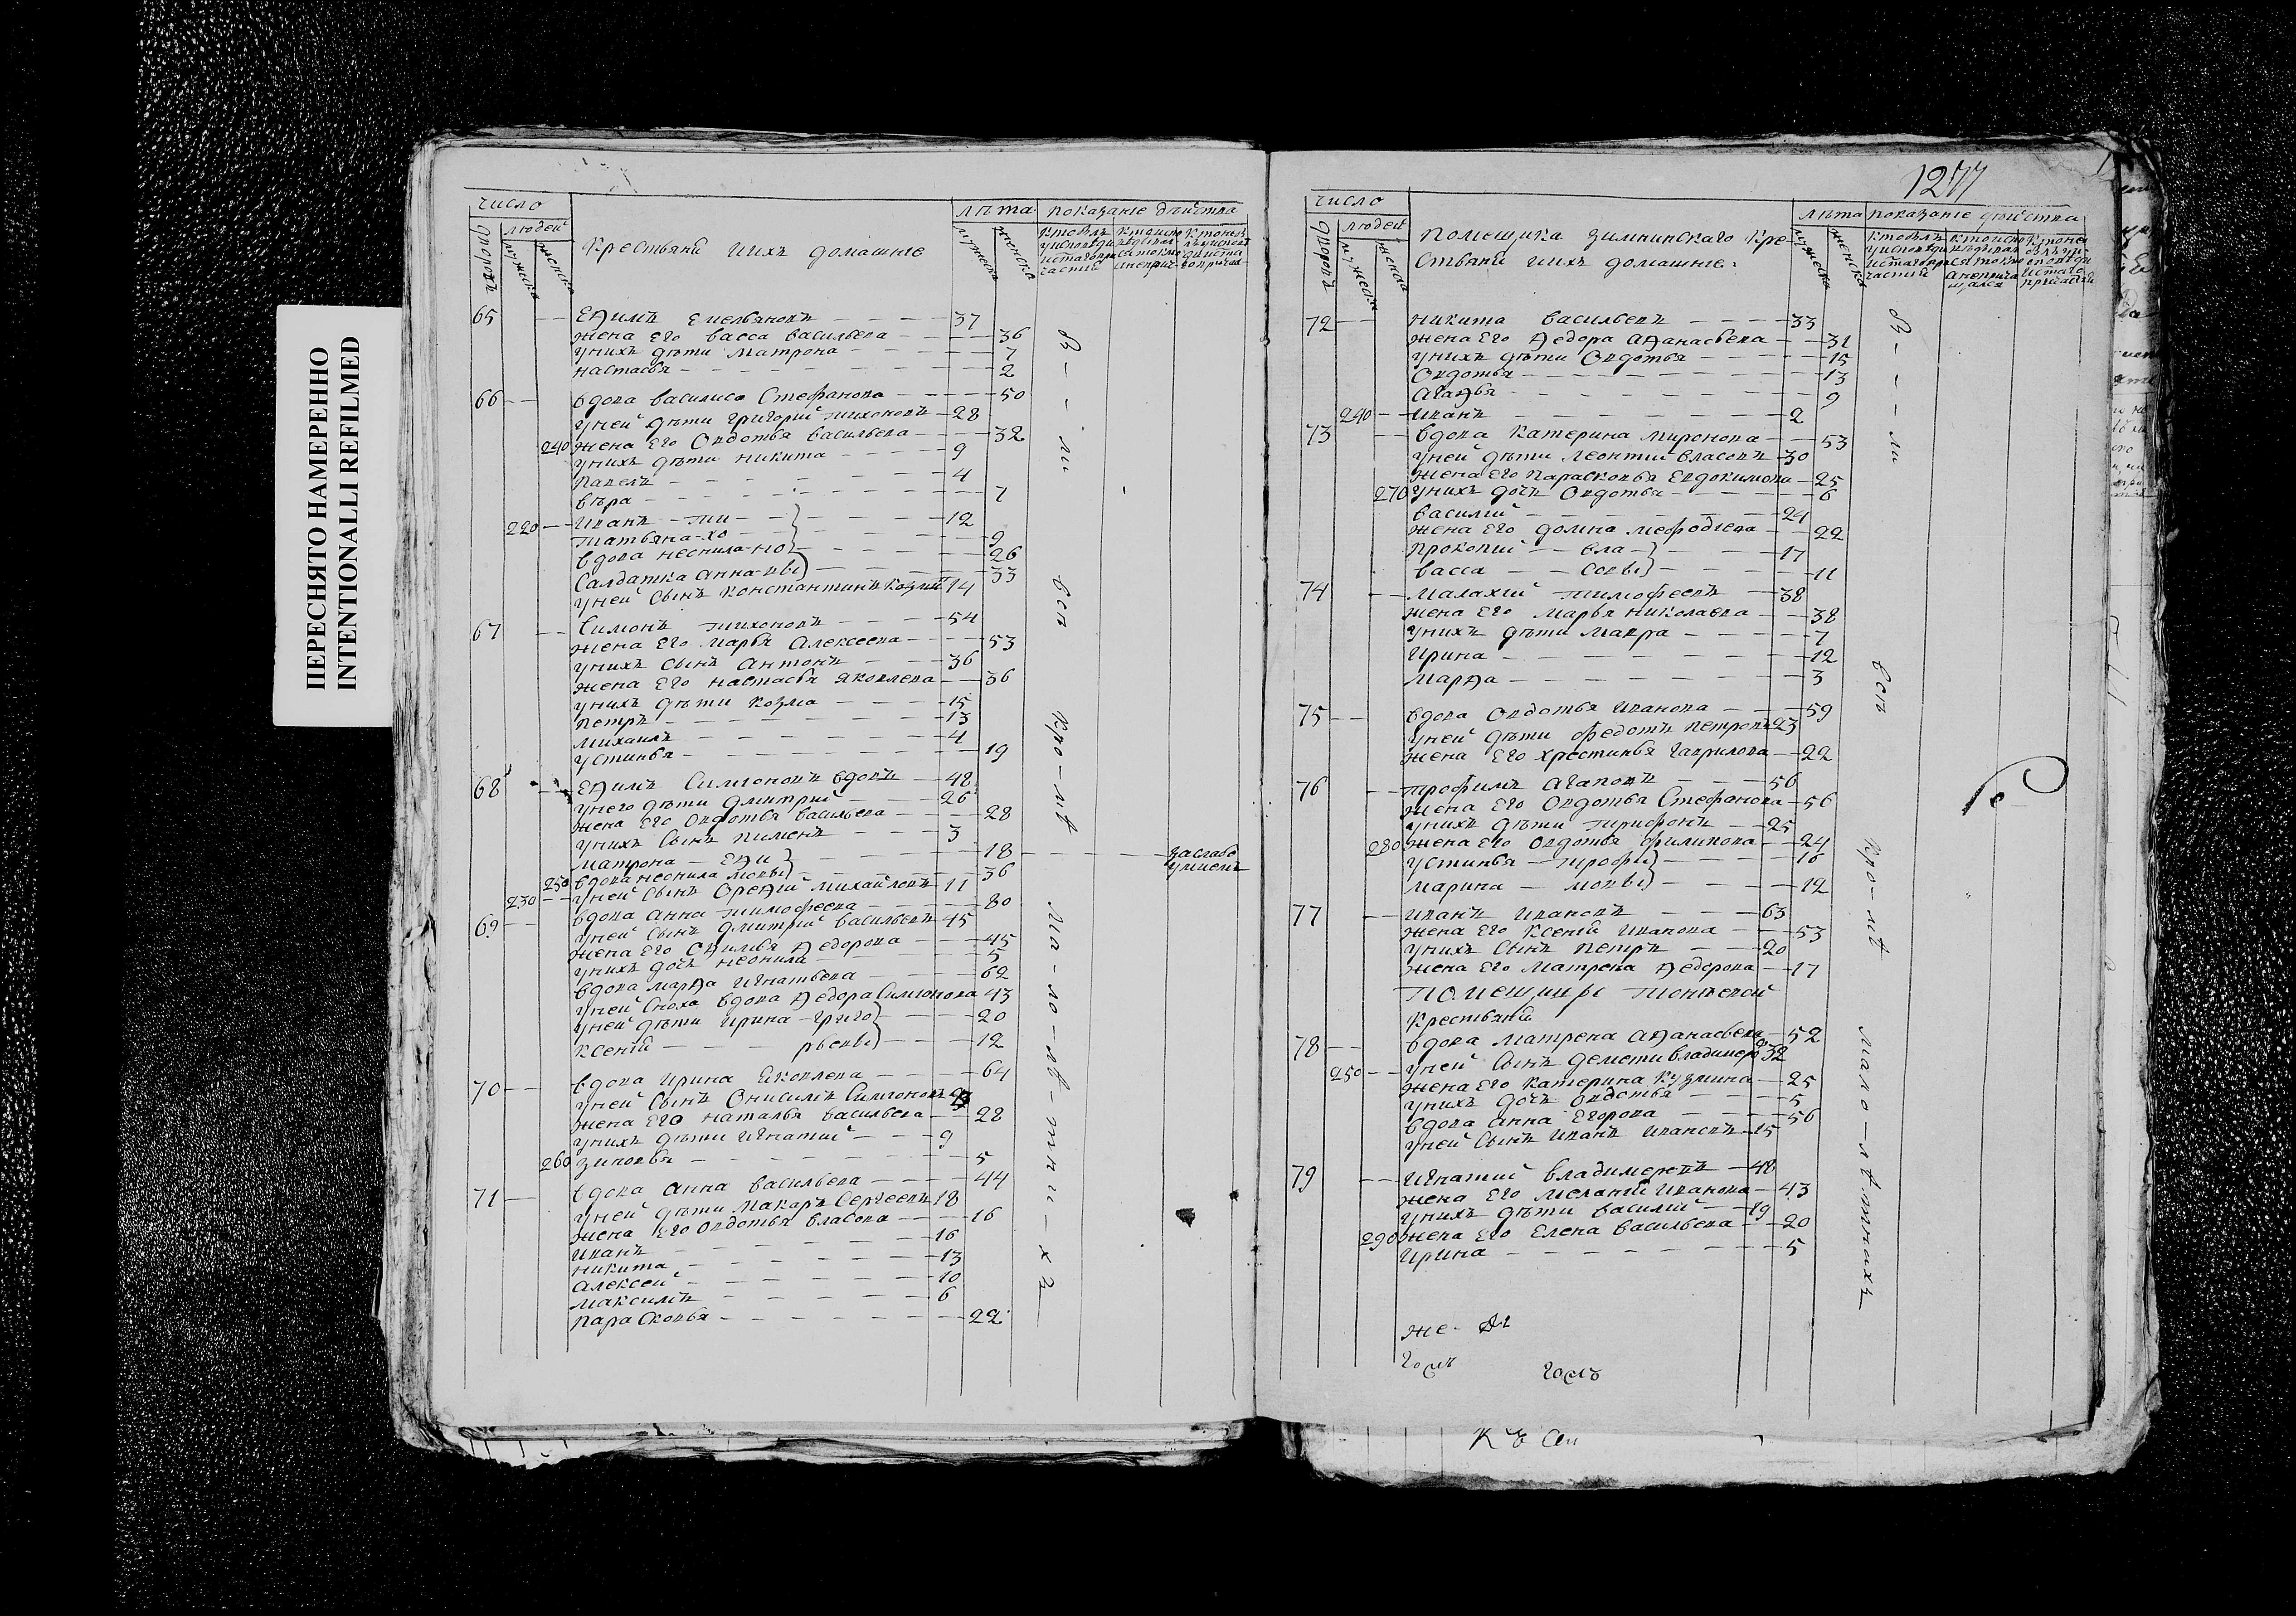 ПЕРЕСНЯТО НАМЕРЕННО
INTENTIONALLI REFILMED
число
людей
дворовъ
мужеска
женска
Крестьяни ихъ домашние
лѣта
мужеска
женска
показание дѣйства
65 Ефимъ Емельяновъ 37
жена Его Васса Васильева 36
унихъ дѣти Матрона 7
Настасья 2
66 Вдова Василиса Стефанова 50
уней дѣти Григорий Тихоновъ 28
240 жена Его Овдотья Васильева 32
унихъ дѣти Никита 9
Павелъ 4
Вѣра 7
220 Иванъ ти 12
Татьяна хо 9
Вдова Неонила но 26
Салдатка Анна вы 33
уней Сынъ Константинъ Козмин 14
67 Симонъ Тихоновъ 54
жена Его Марья Алексеева 53
унихъ Сынъ Антонъ 36
жена Его Настасья Яковлева 36
унихъ дѣти Козма 15
Петръ 13
Михаилъ 4
Устинья 19
68 Ефимъ Симоновъ вдовъ 48
унего дѣти Дмитрий 26
жена Его Овдотья Васильева 28
унихъ Сынъ Пименъ 3
Матрона Ефи 18 заслабоумиемъ
250 Вдова Неонила мовы 36
230 уней Сынъ Орефий Михайловъ 11
69 Вдова Анна Тимофеева 80
уней Сынъ Дмитрий Васильевъ 45
жена Его Офимья Федорова 45
унихъ дочь Неонила 5
Вдова Марфа Игнатьева 62
уней Сноха Вдова Федора Симонова 43
уней дѣти Ирина Григо 20
Ксения рьевы 12
70 Вдова Ирина Яковлева 64
уней Сынъ Онисимъ Симоновъ
жена Его Наталья Васильева 28
унихъ дѣти Игнатий 9
260 Зиновья 5
71 Вдова Анна Васильева 44
уней дѣти Макаръ Сергеевъ 18
жена Его Овдотья Власова 16
Иванъ 16
Никита 13
Алексей 10
Максимъ 6
Парасковья 22
В-ли всѣ кро-мѣ ма-ло-лѣ-тни-хъ
1277
число
людей
дворовъ
мужеска
женска
Помещика Зимнинскаго Крестьяни ихъ домашние:
лѣта
мужеска
женска
показание дѣйства
72 Никита Васильевъ 33
жена Его Федора Афанасьева 31
унихъ дѣти Овдотья 15
Овдотья 13
Агафья 9
240 Иванъ 2
73 Вдова Катерина Миронова 53
уней дѣти Леонтий Власовъ 30
жена Его Парасковья Евдокимова 25
270 унихъ дочь Овдотья 6
Василий 24
жена Его Домна Мефодиева 22
Прокопий вла 17
Васса совы 11
74 Малахий Тимофеевъ 38
жена Его Марья Николаева 38
унихъ дѣти Мавра 7
Ирина 12
Марфа 3
75 Вдова Овдотья Иванова 59
уней дѣти Федотъ Петровъ 23
жена Его Хрестинья Гаврилова 22
76 Трофимъ Агаповъ 56
жена Его Овдотья Стефанова 56
унихъ дѣти Трифонъ 25
280 жена Его Овдотья Филипова 24
Устинья трофи 16
Марина мовы 12
77 Иванъ Ивановъ 63
жена Его Ксения Иванова 53
унихъ Сынъ Петръ 20
жена Его Матрена Федорова 17
Помещицы
Крестьяни
78 Вдова Матрена Афанасьева 52
250 уней Сынъ Дементи Владимеров 32
жена Его Катерина Кузмина 25
унихъ дочь Овдотья 5
Вдова Анна Егорова 56
уней Сынъ Иванъ Ивановъ 15
79 Игнатий Владимеровъ 48
жена Его Меланья Иванова 43
унихъ дѣти Василий 19
290 жена Его Елена Васильева 20
Ирина 5
В-ли всѣ кро-мѣ мало-лѣтнихъ